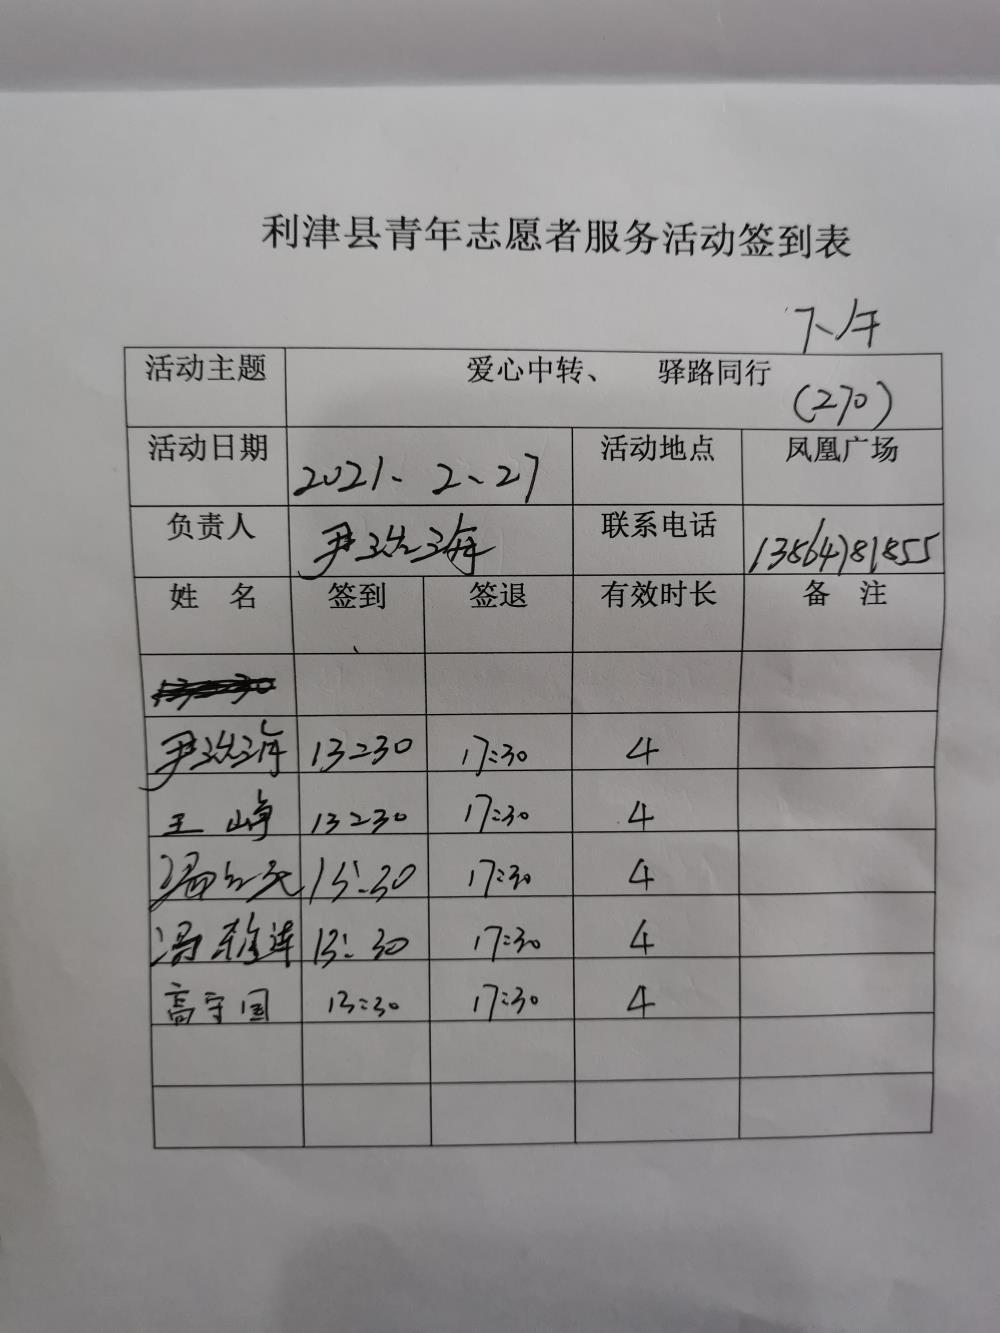 利津县青年志愿者服务活动签到表
下午
活动主题 爱心中转、 驿路同行 (270)
活动日期 2021、2、27 活动地点 凤凰广场
负责人 尹 海 联系电话 13864781855
姓 名 签到 签退 有效时长 备 注
尹 海 13:30 17:30 4
王峥 13:30 17:30 4
13:30 17:30 4
冯 莲 13:30 17:30 4
高守国 13:30 17:30 4